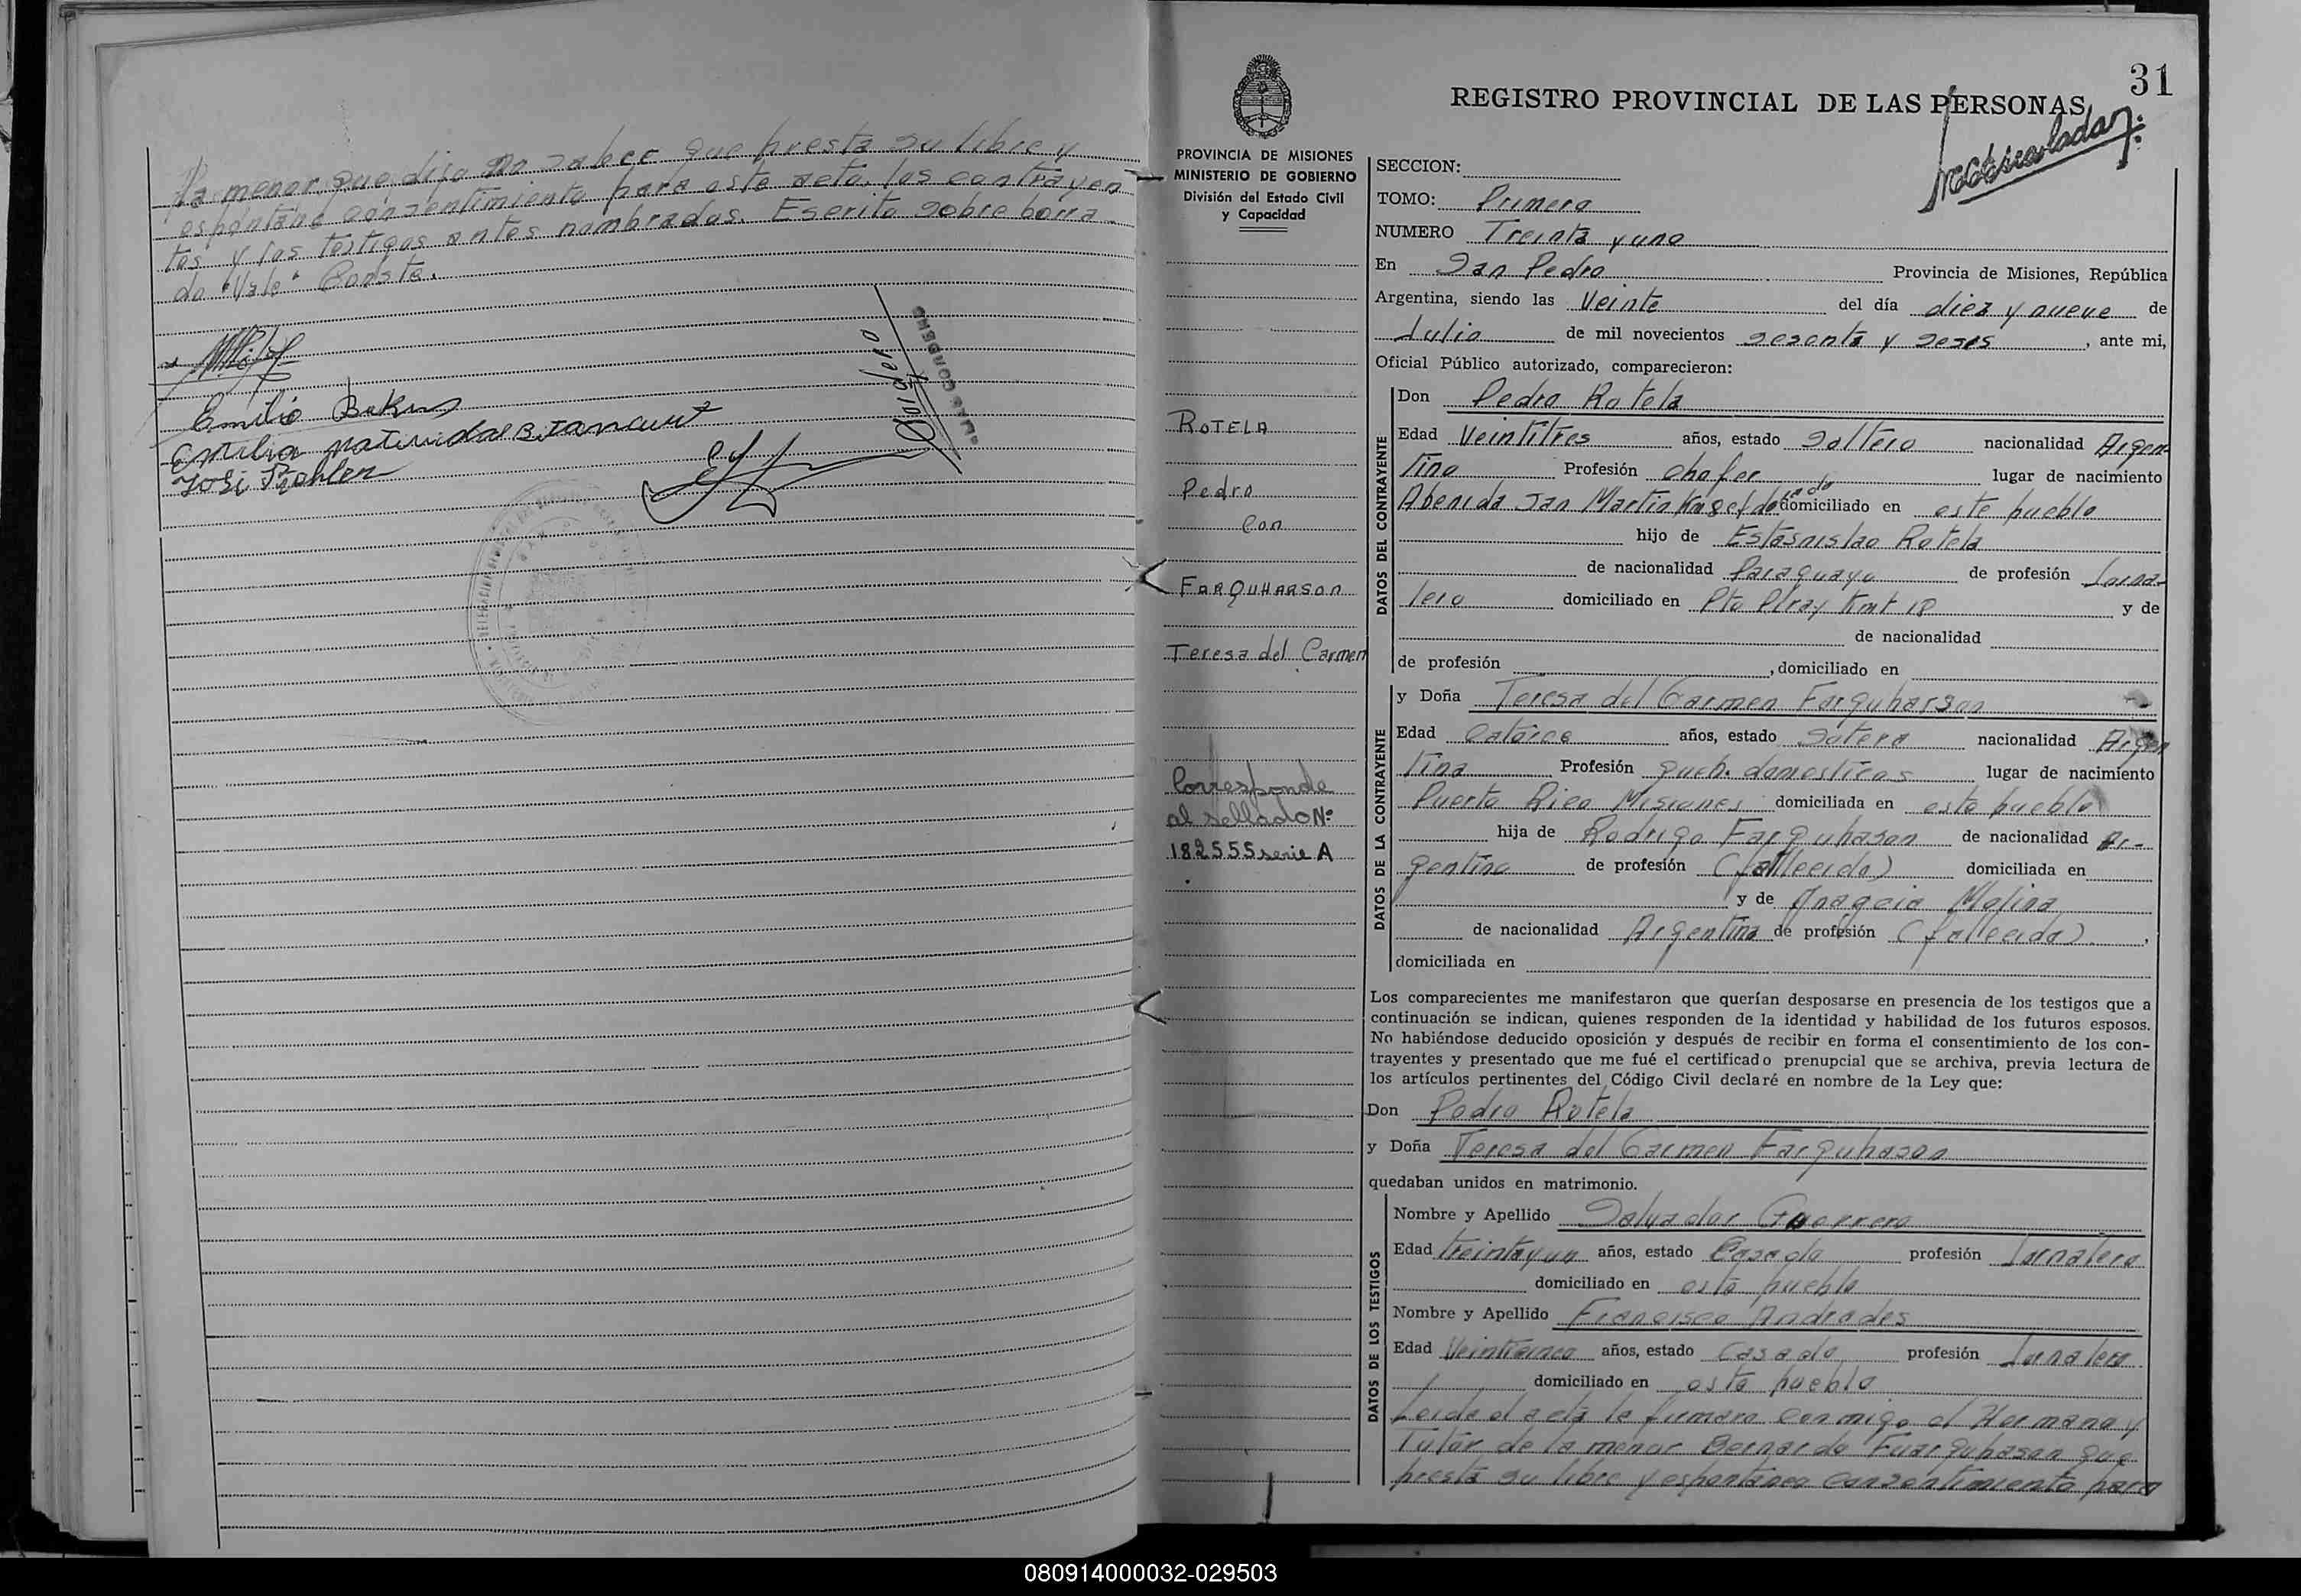 la menor que dijo no saber que presta su libre y
espontáneo consentimiento para este acto, los contrayen
tes y los testigos antes nombrados. Escrito sobre borra
do "Vale" Conste.
Emilio
José
31
REGISTRO PROVINCIAL DE LAS PERSONAS
PROVINCIA DE MISIONES
MINISTERIO DE GOBIERNO
División del Estado Civil
y Capacidad
ROTELA
Pedro
Con
FARQUHARSON
Teresa del Carmen
Corresponde
al sellado Nº
182555 serie A
SECCION:
TOMO: Primero
NUMERO Treinta y uno
En San Pedro Provincia de Misiones, República
Argentina, siendo las Veinte del día diez y nueve de
Julio de mil novecientos sesenta y seis, ante mi,
Oficial Público autorizado, comparecieron:
DATOS DEL CONTRAYENTE
Don Pedro Rotela
Edad Veintitres años, estado Soltero nacionalidad Argen-
tino Profesión chofer lugar de nacimiento
Abenida San Martin domiciliado en este pueblo
hijo de Estasnislao Rotela
de nacionalidad Paraguayo de profesión Jorna-
lero domiciliado en Pto Piray Kmt 18 y de
de nacionalidad
de profesión , domiciliado en
DATOS DE LA CONTRAYENTE
y Doña Teresa del Carmen Farquharson
Edad Catorce años, estado Sotera nacionalidad Argen
tina Profesión queh. domesticos lugar de nacimiento
Puerto Rico Misiones domiciliada en este pueblo
hija de Rodrigo Farquhason de nacionalidad Ar-
gentino de profesión (fallecido) domiciliada en
y de Molina
de nacionalidad Argentina de profesión (fallecida) ,
domiciliada en
Los comparecientes me manifestaron que querían desposarse en presencia de los testigos que a
continuación se indican, quienes responden de la identidad y habilidad de los futuros esposos.
No habiéndose deducido oposición y después de recibir en forma el consentimiento de los con-
trayentes y presentado que me fué el certificado prenupcial que se archiva, previa lectura de
los artículos pertinentes del Código Civil declaré en nombre de la Ley que:
Don Pedro Rotela
y Doña Teresa del Carmen Farquhason
quedaban unidos en matrimonio.
DATOS DE LOS TESTIGOS
Nombre y Apellido Salvador Guerrero
Edad treintayun años, estado Casado profesión Jornalero
domiciliado en este pueblo
Nombre y Apellido Francisco Andrades
Edad Veinticinco años, estado Casado profesión Jornalero
domiciliado en este pueblo
Leida el acta la firmaro conmigo el Hermano y
Tutór de la menor Bernardo Fuarquhason que
presta su libre y espontáneo consentimiento para
080914000032-029503